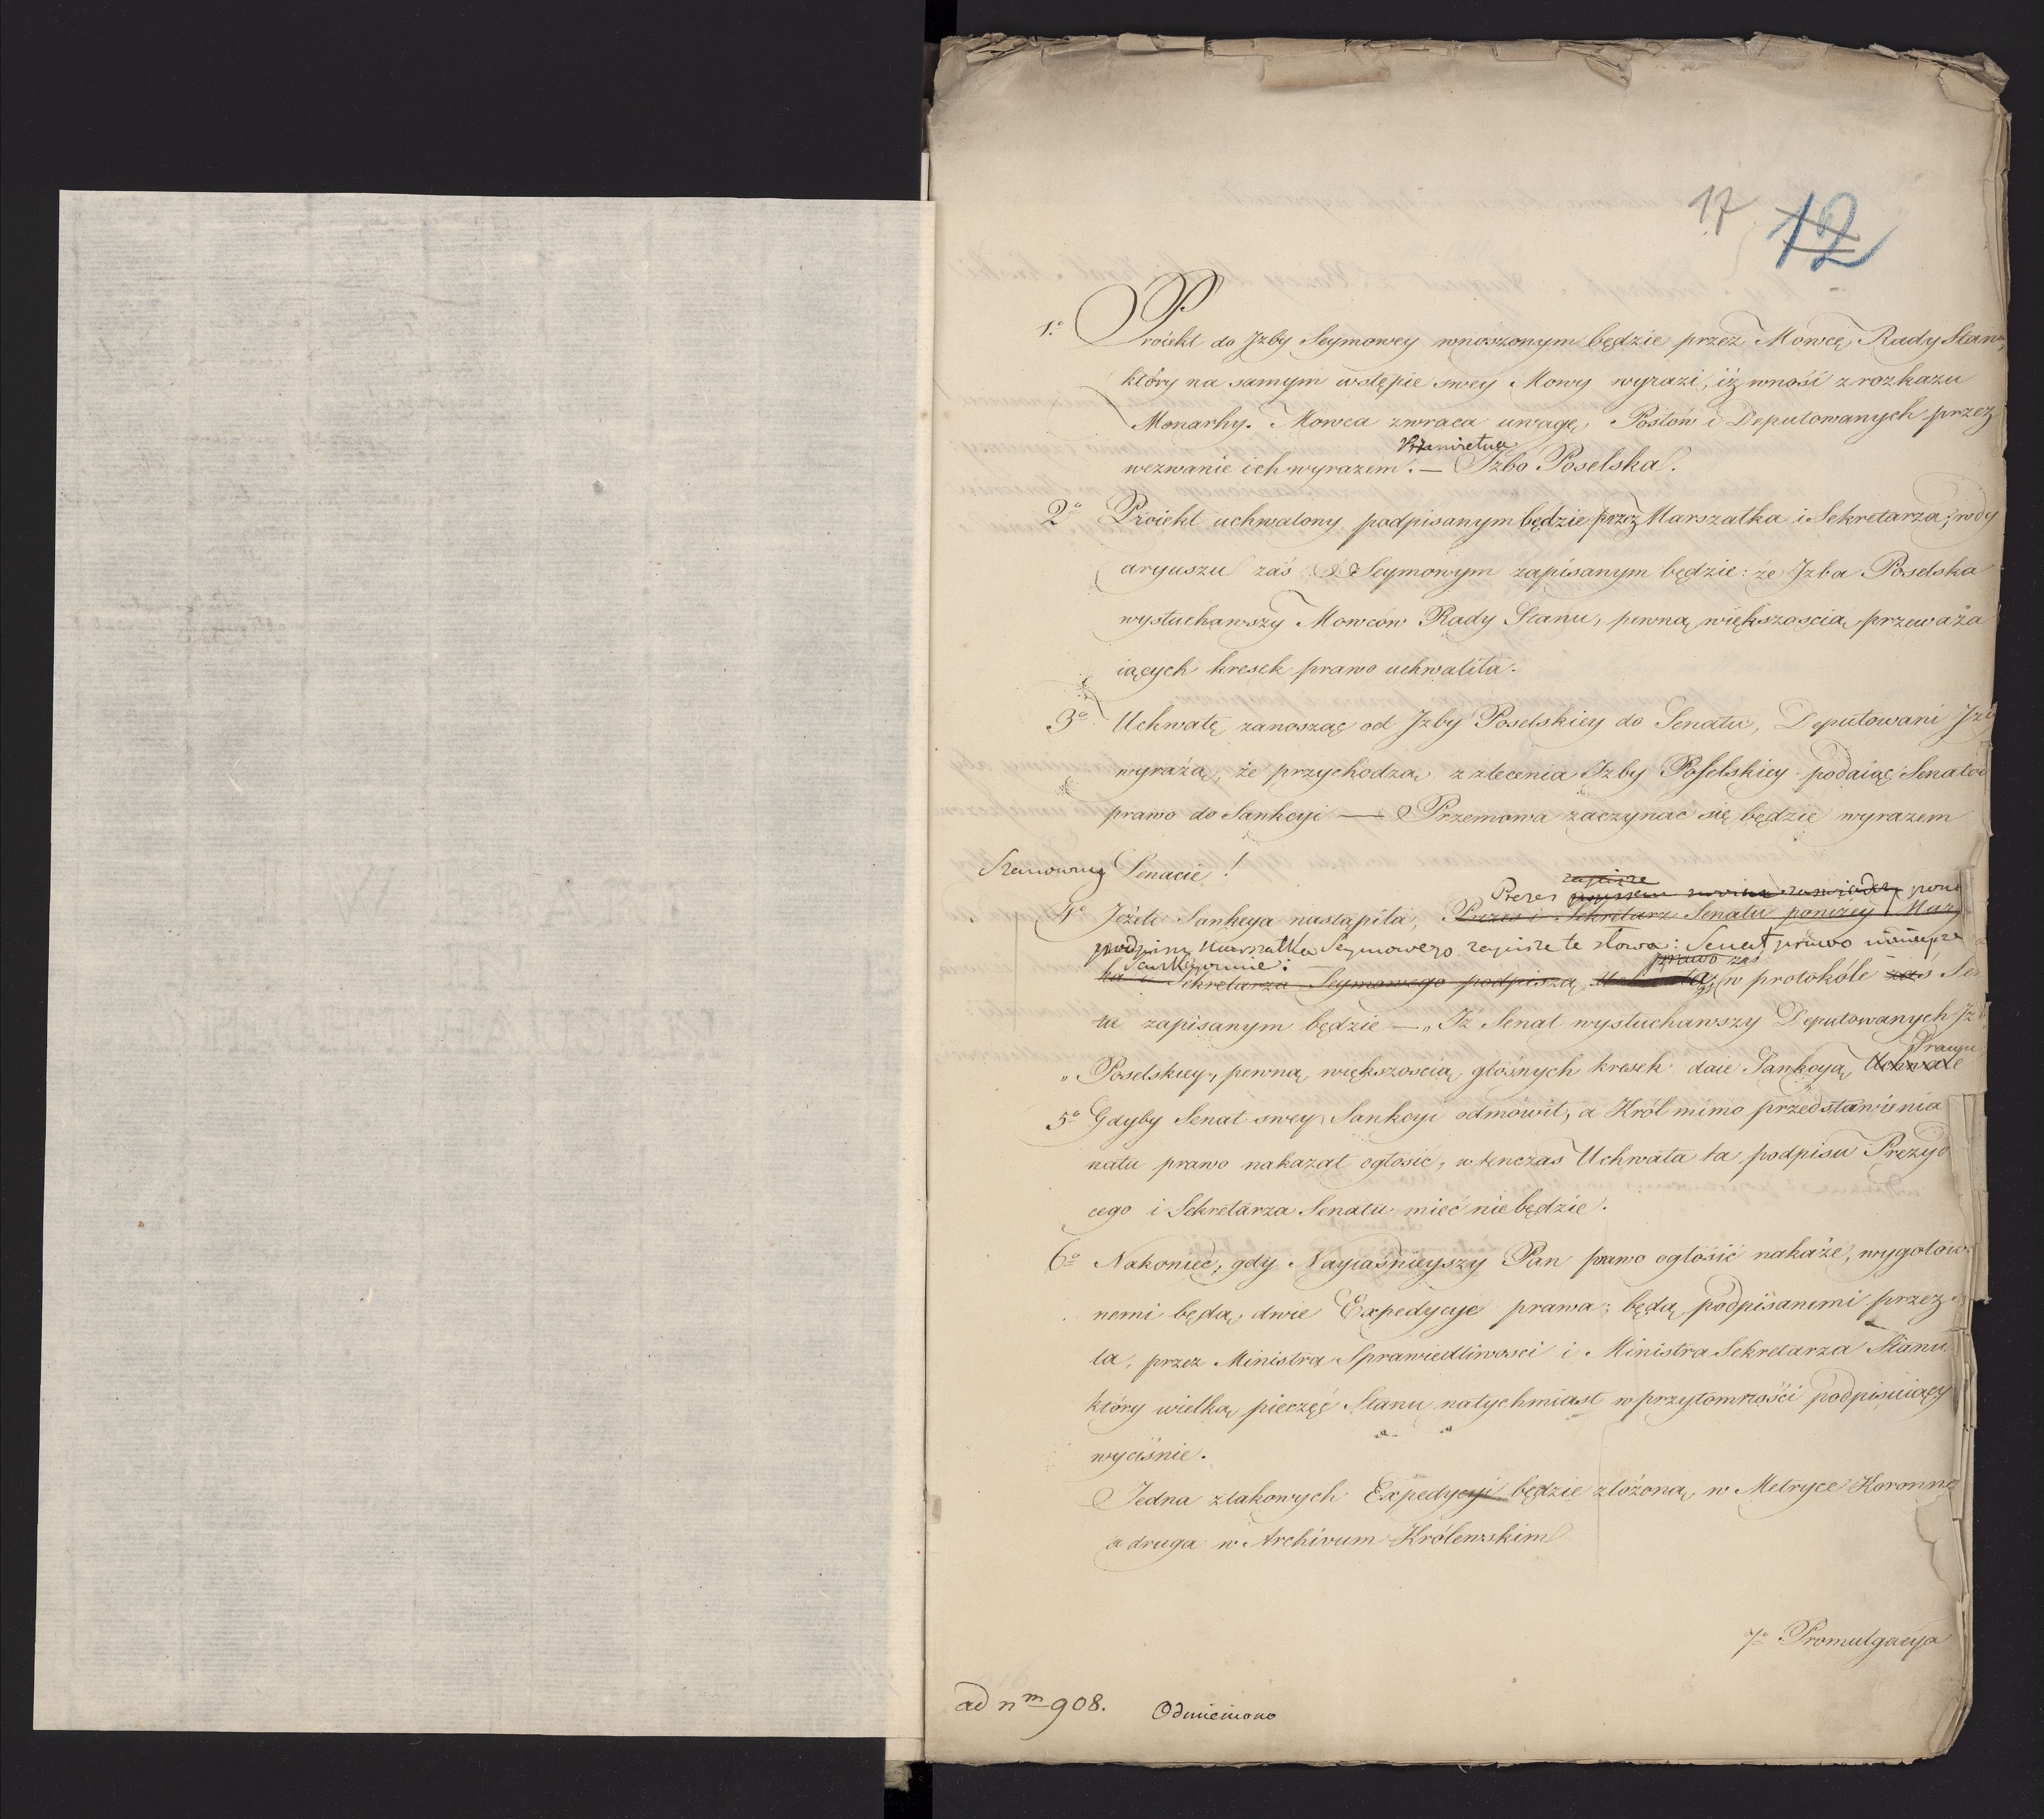 17 12
1º Proiekt do Izby Seymowey wnoszonym będzie przez Mowcę Rady Stanu,
który na samym wstępie swey Mowy wyrazi, iż wnosi z rozkazu
Monarhy. Mowca zwraca uwagę Posłów i Deputowanych przez
Prześwietna
wezwanie ich wyrazem: — Izbo Poselska.
2º Proiekt uchwalony podpisanym będzie przez Marszałka i Sekretarza; w dy
aryuszu zaś Seymowym zapisanym będzie: że Izba Poselska
wysłuchawszy Mowców Rady Stanu, pewną większoscią przeważa
iących kresek prawo uchwaliła.
3º Uchwałę zanosząc od Izby Poselskiey do Senatu, Deputowani Izby
wyrażą, że przychodzą z zlecenia Izby Poselskiey podaiąc Senatow
prawo do Sankcyi — Przemowa zaczynać się będzie wyrazem
Szanowny Senacie!
zapisze
Prezes
4º Jeżeli Sankcya nastąpiła, Prezes i Sekretarz Senatu poniżey Marsz
podpisu Marszałka Seymowego zapisze te słowa: Senat prawo ninieysze
Sankcyonuie: prawo zaś
ka i Sekretarza Seymowego podpiszą w protokóle zaś Sena
tu zapisanym będzie — „Iż Senat wysłuchawszy Deputowanych Iz
Prawu
„Poselskiey, pewną większoscią głośnych kresek daie Sankcyą Uchwale
5º Gdyby Senat swey Sankcyi odmówił, a Król mimo przedstawienia
natu prawo nakazał ogłosić, w tenczas Uchwała ta podpisu Prezyd
cego i Sekretarza Senatu mieć nie będzie.
6º Nakoniec, gdy Nayiaśnieyszy Pan prawo ogłosić nakaże, wygotowa
nemi będą dwie Expedycye prawa; będą podpisanemi przez
la, przez Ministra Sprawiedliwosci i Ministra Sekretarza Stanu
który wielką pieczęć Stanu natychmiast w przytomności podpisuiący
wyciśnie.
Jedna z takowych Expedycyi będzie złożoną w Metryce Koronne
a druga w Archivum Królewskim
7º Promulgacya
ad nm 908. Odmieniono